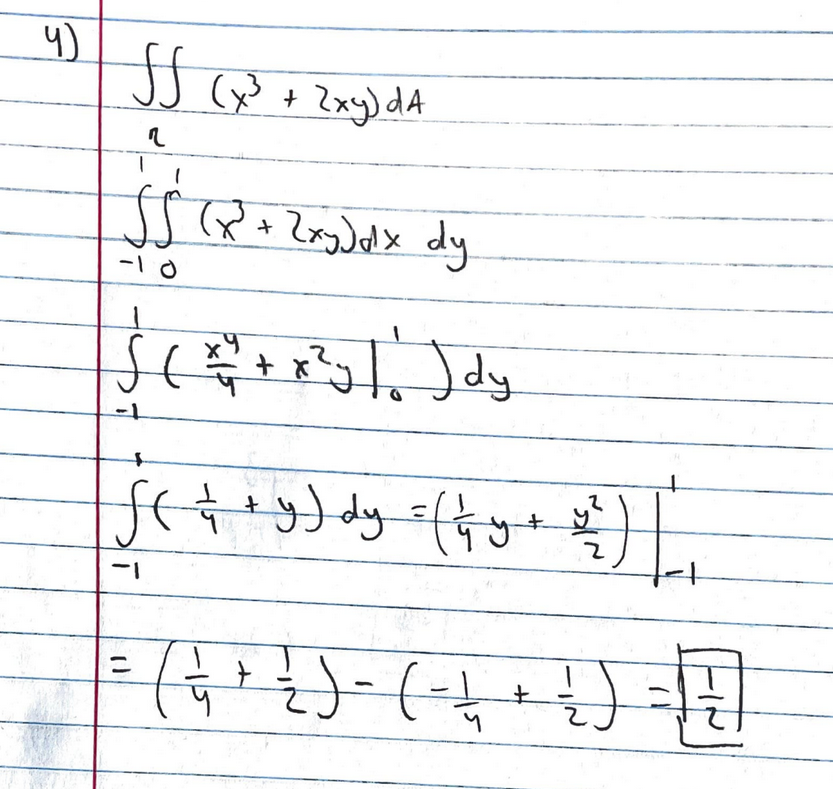 4) ∬_R (x³ + 2xy)dA
∫_{-1}^{1} ∫_{0}^{1} (x³ + 2xy)dx dy
∫_{-1}^{1} ( x⁴/4 + x²y |_{0}^{1} ) dy
∫_{-1}^{1} ( 1/4 + y) dy = (1/4 y + y²/2) |_{-1}^{1}
= (1/4 + 1/2) - (-1/4 + 1/2) = 1/2